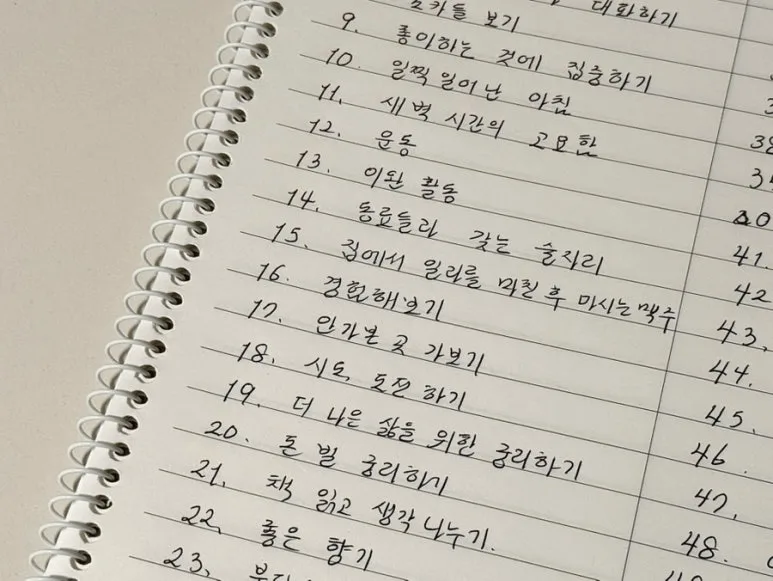 대화하기
조카들 보기
9. 좋아하는 것에 집중하기
10. 일찍 일어난 아침
11. 새벽 시간의 고요함
12. 운동
13. 이완 활동
14. 동료들과 갖는 술자리
15. 집에서 일과를 마친 후 마시는 맥주
16. 경험해보기
17. 안가본 곳 가보기
18. 시도, 도전 하기
19. 더 나은 삶을 위한 궁리하기
20. 돈 벌 궁리하기
21. 책 읽고 생각 나누기.
22. 좋은 향기
23.
40
41.
42
43.
44.
45.
46.
47.
48.